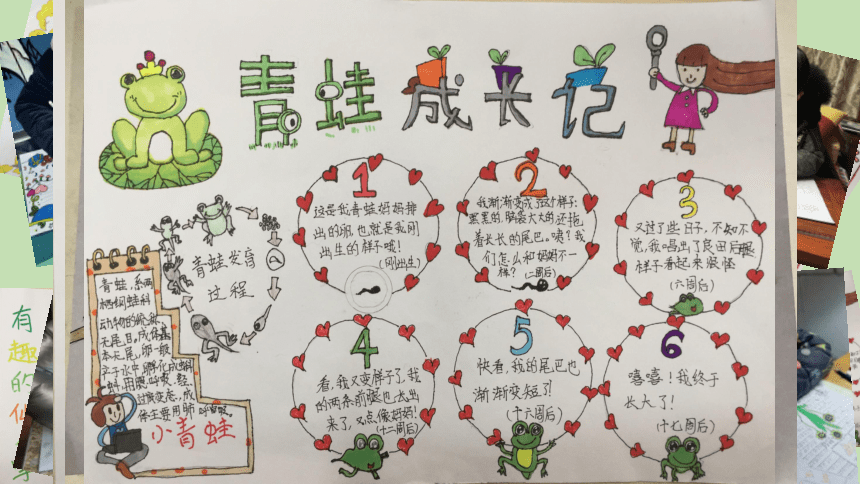 青蛙成长记
1
这是我青蛙妈妈排
出的卵,也就是我刚
出生的样子哦!
(刚出生)
2
我渐渐变成了这个样子:
黑黑的,脑袋大大的,还拖
着长长的尾巴。咦?我
们怎么和妈妈不一
样?(二周后)
3
又过了些日子,不知不
觉,我唱出了良田后腿
样子看起来很怪
(六周后)
青蛙发育
过程
青蛙,系两
栖纲蛙科
动物的统称
无尾目。成体基
本无尾,卵一般
产于水中,孵化成蝌
蚪,用腮呼吸,经
过变态,成
体主要用肺呼吸。
小青蛙
4
看,我又变样子了,我
的两条前腿也长出
来了,又点像妈妈!
(十二周后)
5
快看,我的尾巴也
渐渐变短了!
(十六周后)
6
嘻嘻!我终于
长大了!
(十七周后)
有
趣
的